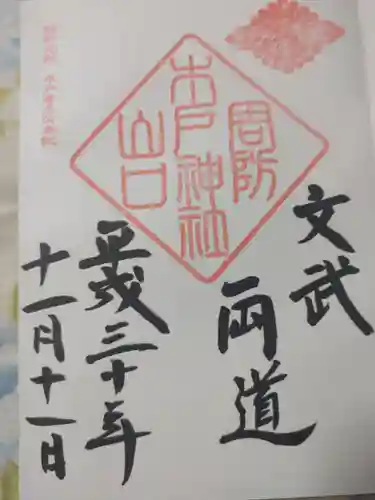 文武
両道
周防
木戸神社
山口
平成三十年
十一月十一日